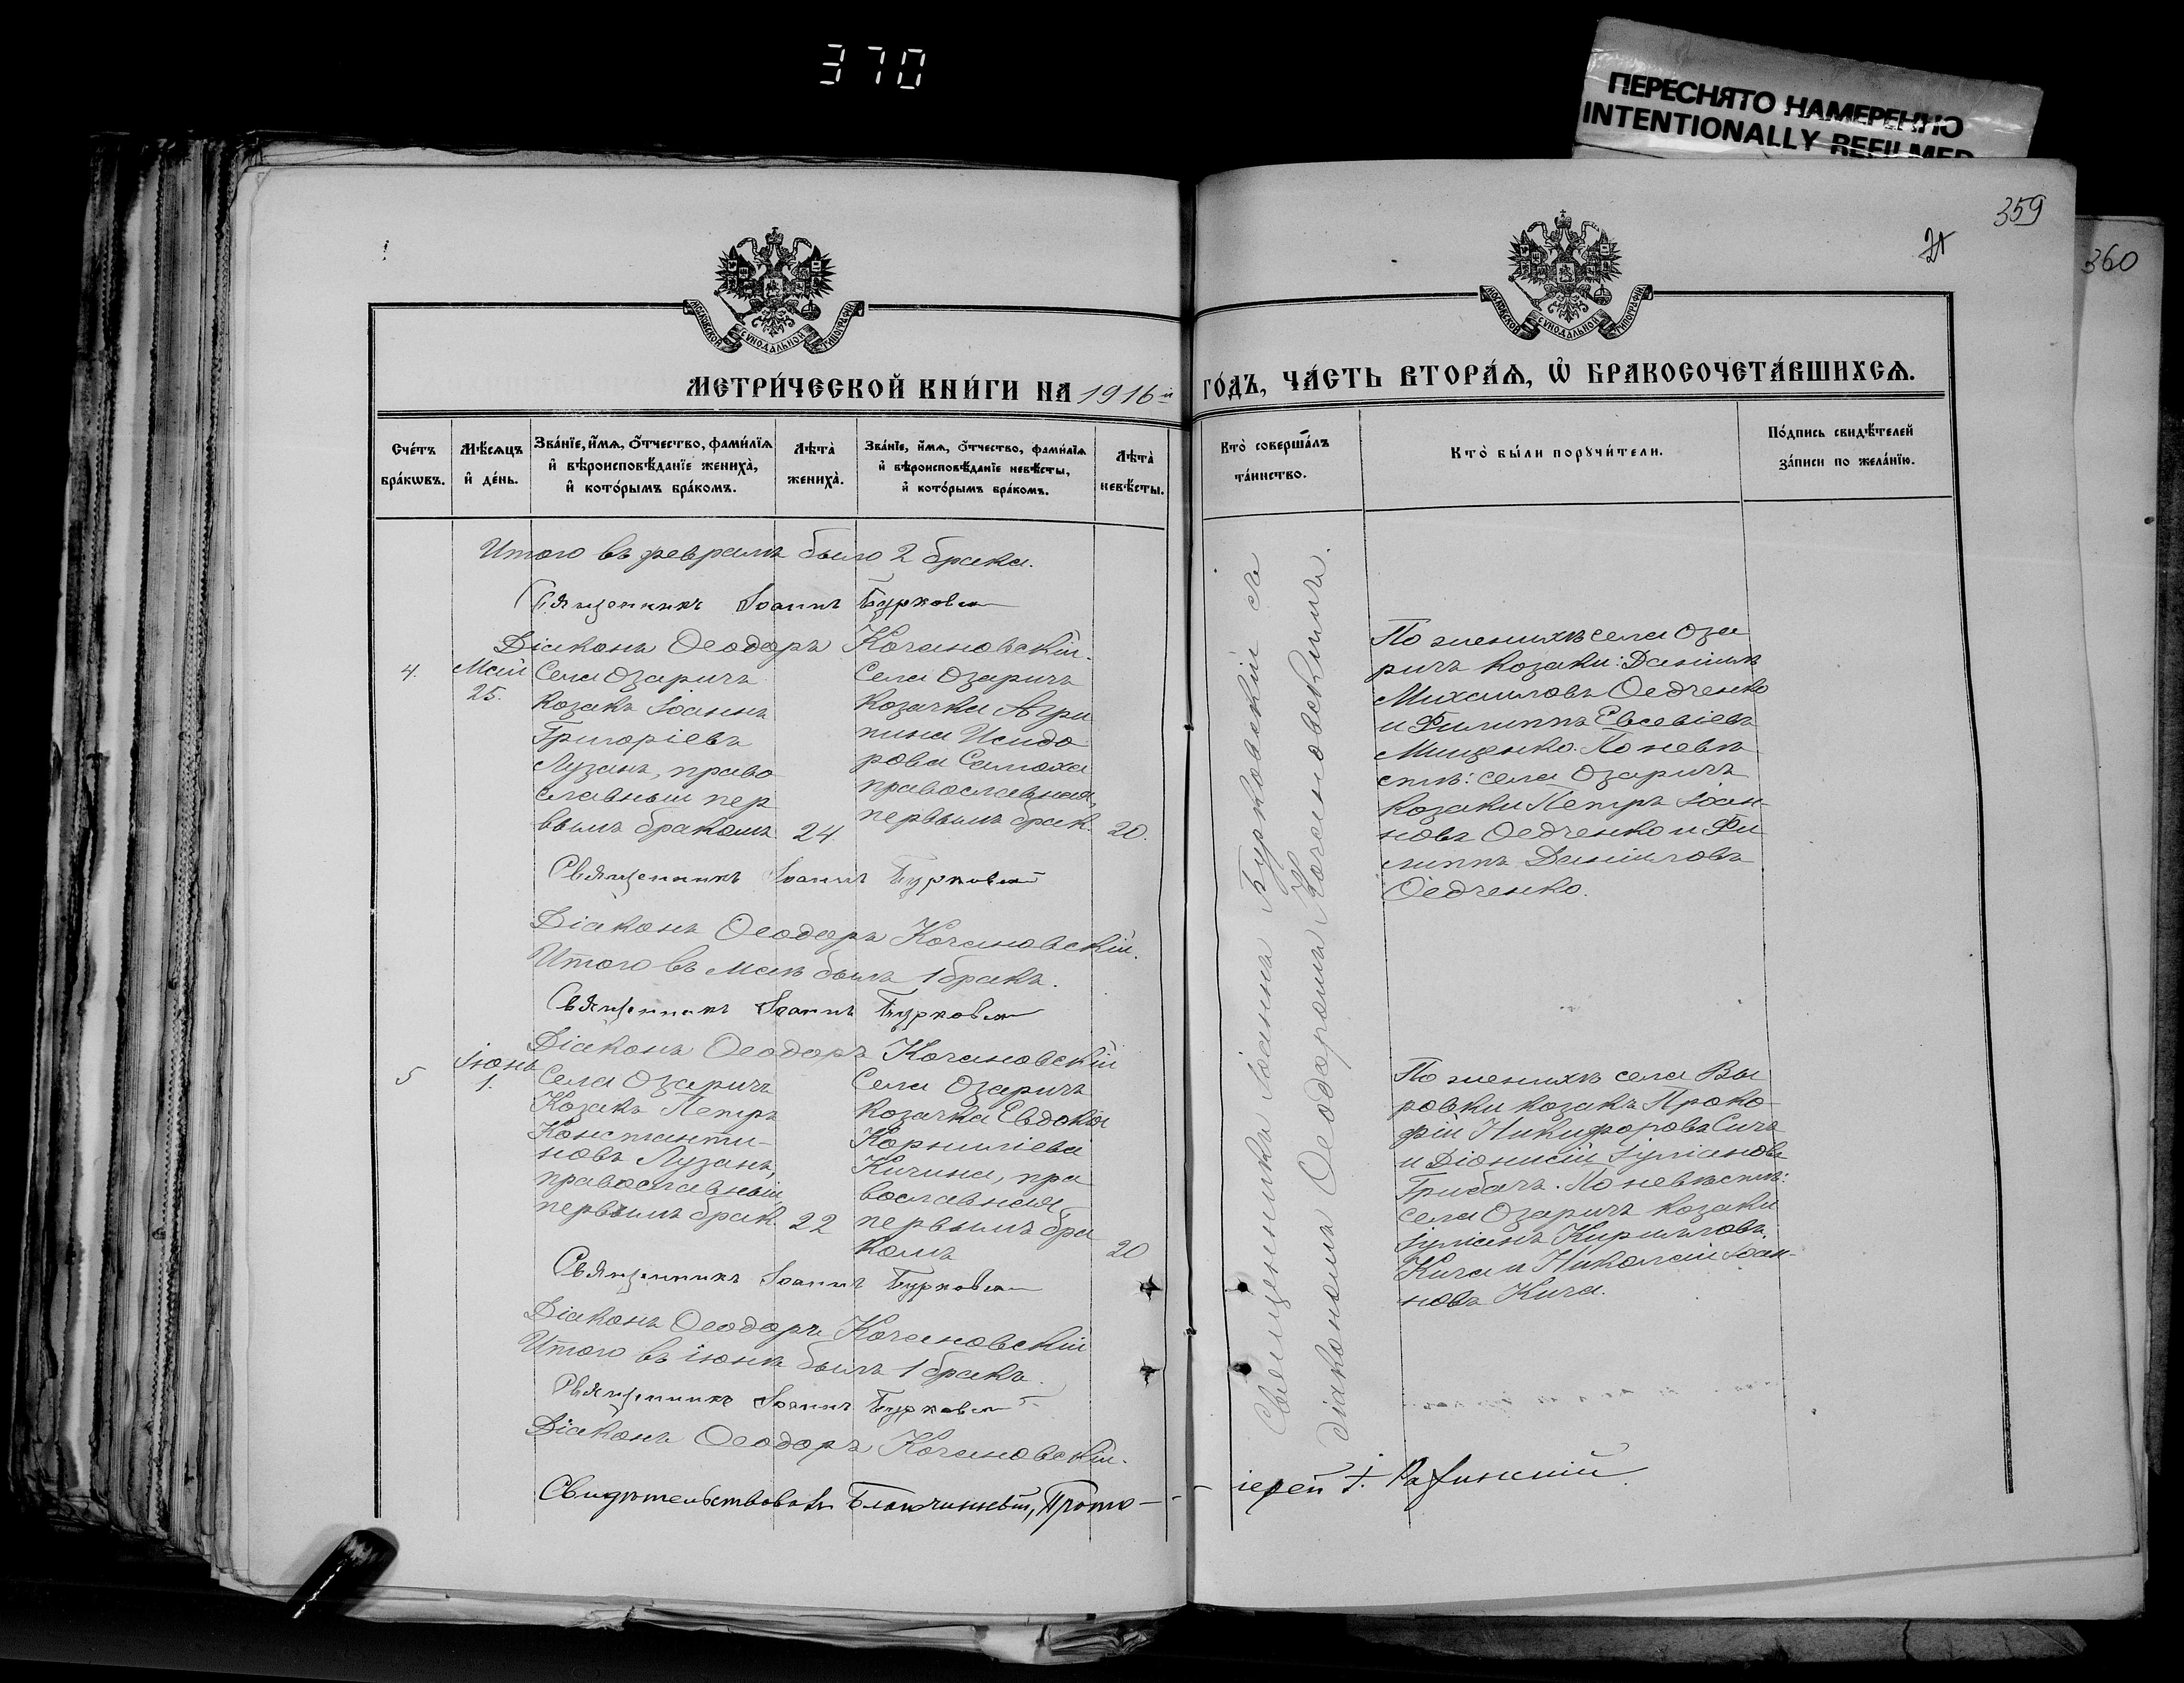 370
ПЕРЕСНЯТО НАМЕРЕННО
INTENTIONALLY REFILMED
359
21
360
МОСКОВСКОЙ СѴНОДАЛЬНОЙ ТИПОГРАФІИ
МОСКОВСКОЙ СѴНОДАЛЬНОЙ ТИПОГРАФІИ
МЕТРИ́ЧЕСКОЙ КНИ́ГИ НА 1916 й ГО́ДЪ, ЧА́СТЬ ВТОРА́Ѧ, Ѡ҆ БРАКОСОЧЕТА́ВШИХСѦ.
Сче́тъ бра́кѡвъ.
Мѣ́сѧцъ и҆ де́нь.
Зва́нїе, и҆́мѧ, ѻ҆́тчество, фами́лїѧ и҆ вѣроисповѣ́данїе жениха̀, и҆ кото́рымъ бра́комъ.
Лѣта̀ жениха̀.
Зва́нїе, и҆́мѧ, ѻ҆́тчество, фами́лїѧ и҆ вѣроисповѣ́данїе невѣ́сты, и҆ кото́рымъ бра́комъ.
Лѣта̀ невѣ́сты.
Кто̀ соверша́лъ та́инство.
Кто̀ бы́ли порꙋчи́тели.
По́дпись свидѣ́телей за́писи по жела́нїю.
Итого въ февралѣ было 2 брака.
Священникъ Іоаннъ Бурковскій
Діаконъ Ѳеодоръ Кочановскій.
4.
Май
25.
Села Озаричъ
козакъ Іоаннъ
Григоріевъ
Лузанъ, право
славный пер
вымъ бракомъ.
24.
Села Озаричъ
козачка Агри
пина Исидо
рова Самоха
православная,
первымъ брак.
20.
Священника Іоаннъ Бурковскій съ
діакономъ Ѳеодоромъ Кочановскимъ.
По женихѣ села Оза
ричъ козаки: Даніилъ
Михаиловъ Ѳедченко
и Филиппъ Евсевіевъ
Мищенко. По невѣ
стѣ: села Озаричъ
козаки Петръ Іоан-
новъ Ѳедченко и Фи
липпъ Даниловъ
Ѳедченко.
Священникъ Іоаннъ Бурковскій
Діаконъ Ѳеодоръ Кочановскій.
Итого въ маѣ былъ 1 бракъ.
Священникъ Іоаннъ Бурковскій
Діаконъ Ѳеодоръ Кочановскій
5
Іюнь
1.
Села Озаричъ
Козакъ Петръ
Константи-
новъ Лузанъ,
православный,
первымъ брак.
22
Села Озаричъ
козачка Евдокія
Корниліева
Кичина, пра
вославная,
первымъ бра
комъ
20
По женихѣ села Вы
ровки козакъ Проко
фій Никифоровъ Сичъ
и Діонисій Іуліановъ
Грибачъ. По невѣстѣ:
села Озаричъ козаки
Іуліанъ Кирилловъ
Кича и Николай Іоан-
новъ Кича.
Священникъ Іоаннъ Бурковскій
Діаконъ Ѳеодоръ Кочановскій
Итого въ іюнѣ былъ 1 бракъ.
Священникъ Іоаннъ Бурковскій
Діаконъ Ѳеодоръ Кочановскій.
Свидѣтельствовалъ Благочинный, Прото--- іерей І.